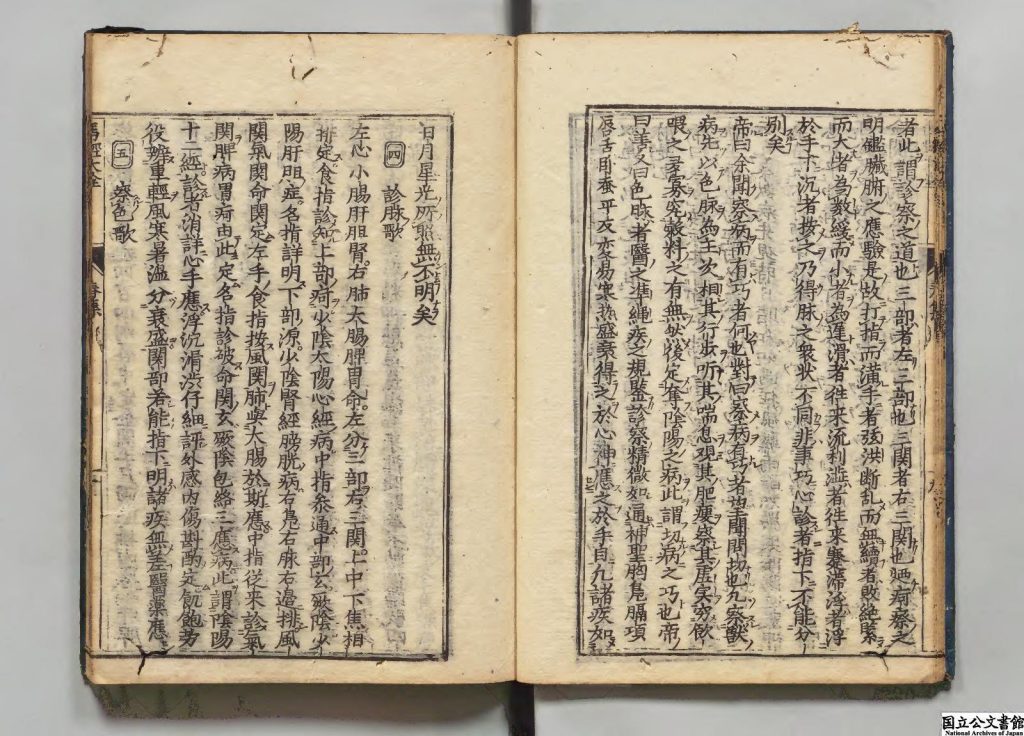 者此謂診察之道也三部者左三部也三関者右三関也
明鑑臓腑之應驗是故打指而潢手者弦洪断乱而無續者敗絶緊
而大者為數緩而小者為遅滑者往来流利澁者往来蹇滞浮者浮
於手下沉者按之乃得脉之衆状不同非事巧心診者指下不能分
别矣
帝曰余聞察病而有巧者何也對曰察病息巧者望聞問切也凢察獣
病先以色脉為主次相其行歩听其喘息观其肥瘦察其虚实究飲
喂之多寡究穀料之有無然後定奪陰陽之病此謂切病之巧也帝
曰善又曰色脉者醫之準繩疾之規鑒診察精微如通神聖胸鳧膈項
唇舌甪蚕平反交易寒熱盛衰得之於心神應之於手自凢諸疾如
日月星光所照無不明矣
四 診脉歌
左心小腸肝胆腎右肺大腸脾胃命左分三部右三関上中下焦相
排定食指診知上部疴少陰太陽心經病中指參通中部玄厥陰少
陽肝胆症名指詳明下部源少陰腎經膀胱病右鳧右脉右邉排風
関氣関命関定左手食指按風関肺與大腸於斯應中指從来診氣
関脾病胃疴由此定名指診破命関玄厥陰包絡三應病此謂陰陽
十二經診者消詳心手應浮沉滑洪仔細評外感内傷斟酌定飢飽労
役辨重輕風寒暑溫分衰盛関部若能指下明諸疾無差醫藥應
五 察色歌
国立公文書館
National Archives of Japan